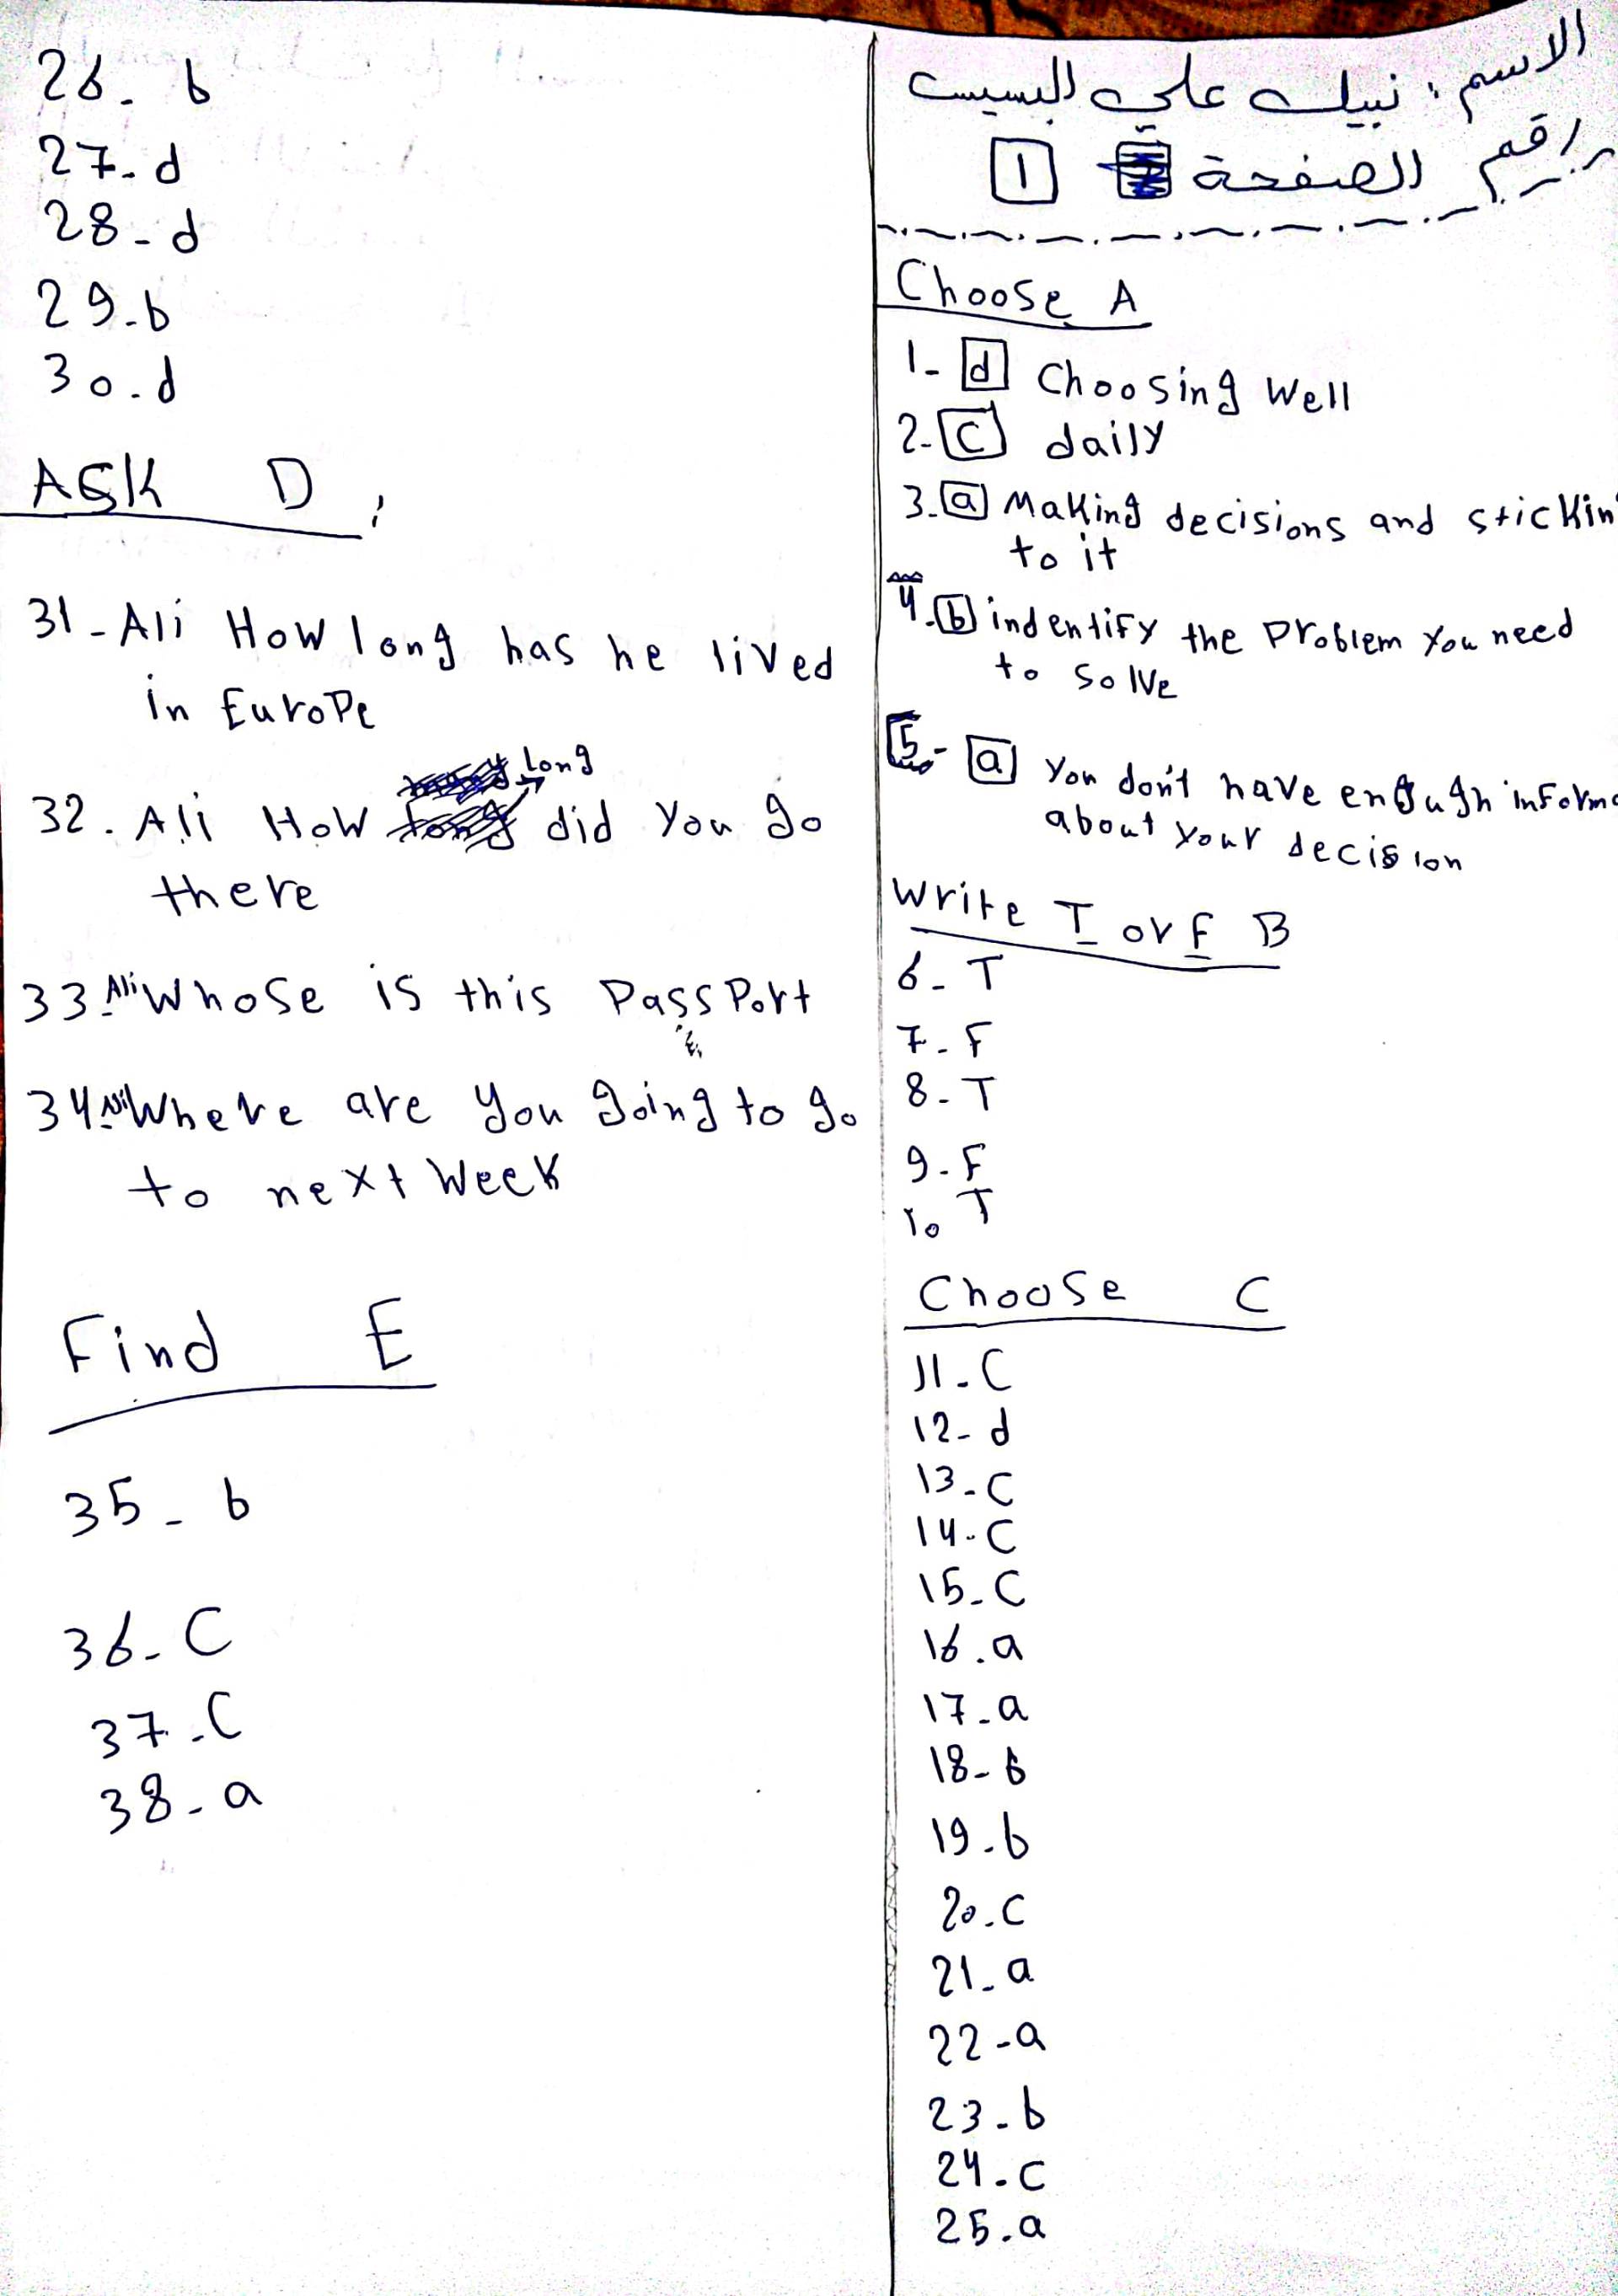 الاسم : نبيل علي البسيس
رقم الصفحة 1
Choose A
1- d Choosing Well
2- C daily
3. a Making decisions and stickin
to it
4. b indentify the Problem You need
to solve
5- a You don't have enough informa
about your decision
Write T or F B
6- T
7- F
8- T
9- F
10 T
Choose C
11- C
12- d
13- C
14- C
15- C
16. a
17- a
18- b
19- b
20. C
21- a
22- a
23- b
24- c
25. a
26- b
27- d
28- d
29- b
30. d
ASK D
31- Ali How long has he lived
in Europe
32. Ali How Long did You go
there
33. Ali Whose is this PassPort
34. Ali Where are you going to go
to next Week
Find E
35- b
36- C
37- C
38- a